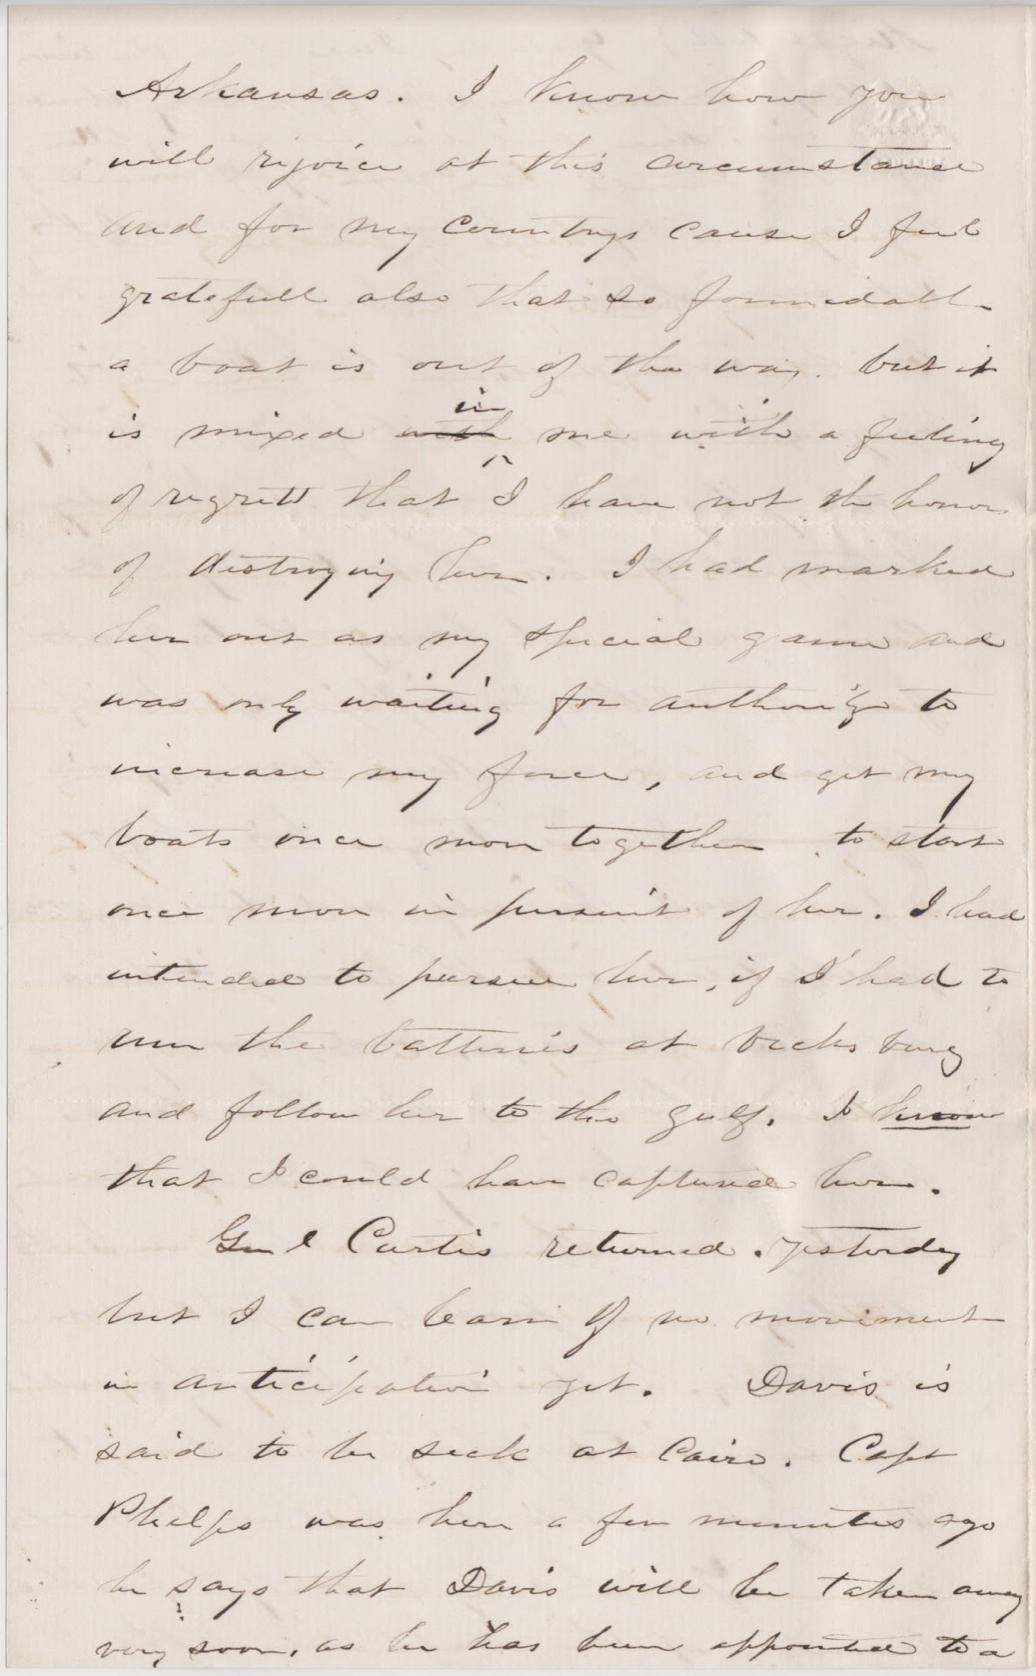 Arkansas. I know how you
will rejoice at this circumstance
and for my countrys cause I feel
gratefull also that so formidable
a boat is out of the way. but it
is mixed with in me with a feeling
of regrett that I have not the honor
of destroying her. I had marked
her out as my special game and
was only waiting for authority to
increase my force, and get my
boats once more together to start
once more in pursuit of her. I had
intended to pursue her, if I had to
run the batteries at vicksburg
and follow her to the gulf. I know
that I could have captured her.
Genl Curtis returned yesterday
but I can learn of no movement
in anticipation yet. Davis is
said to be sick at Cairo. Capt
Phelps was here a few minutes ago
he says that Davis will be taken away
very soon, as he has been appointed to a